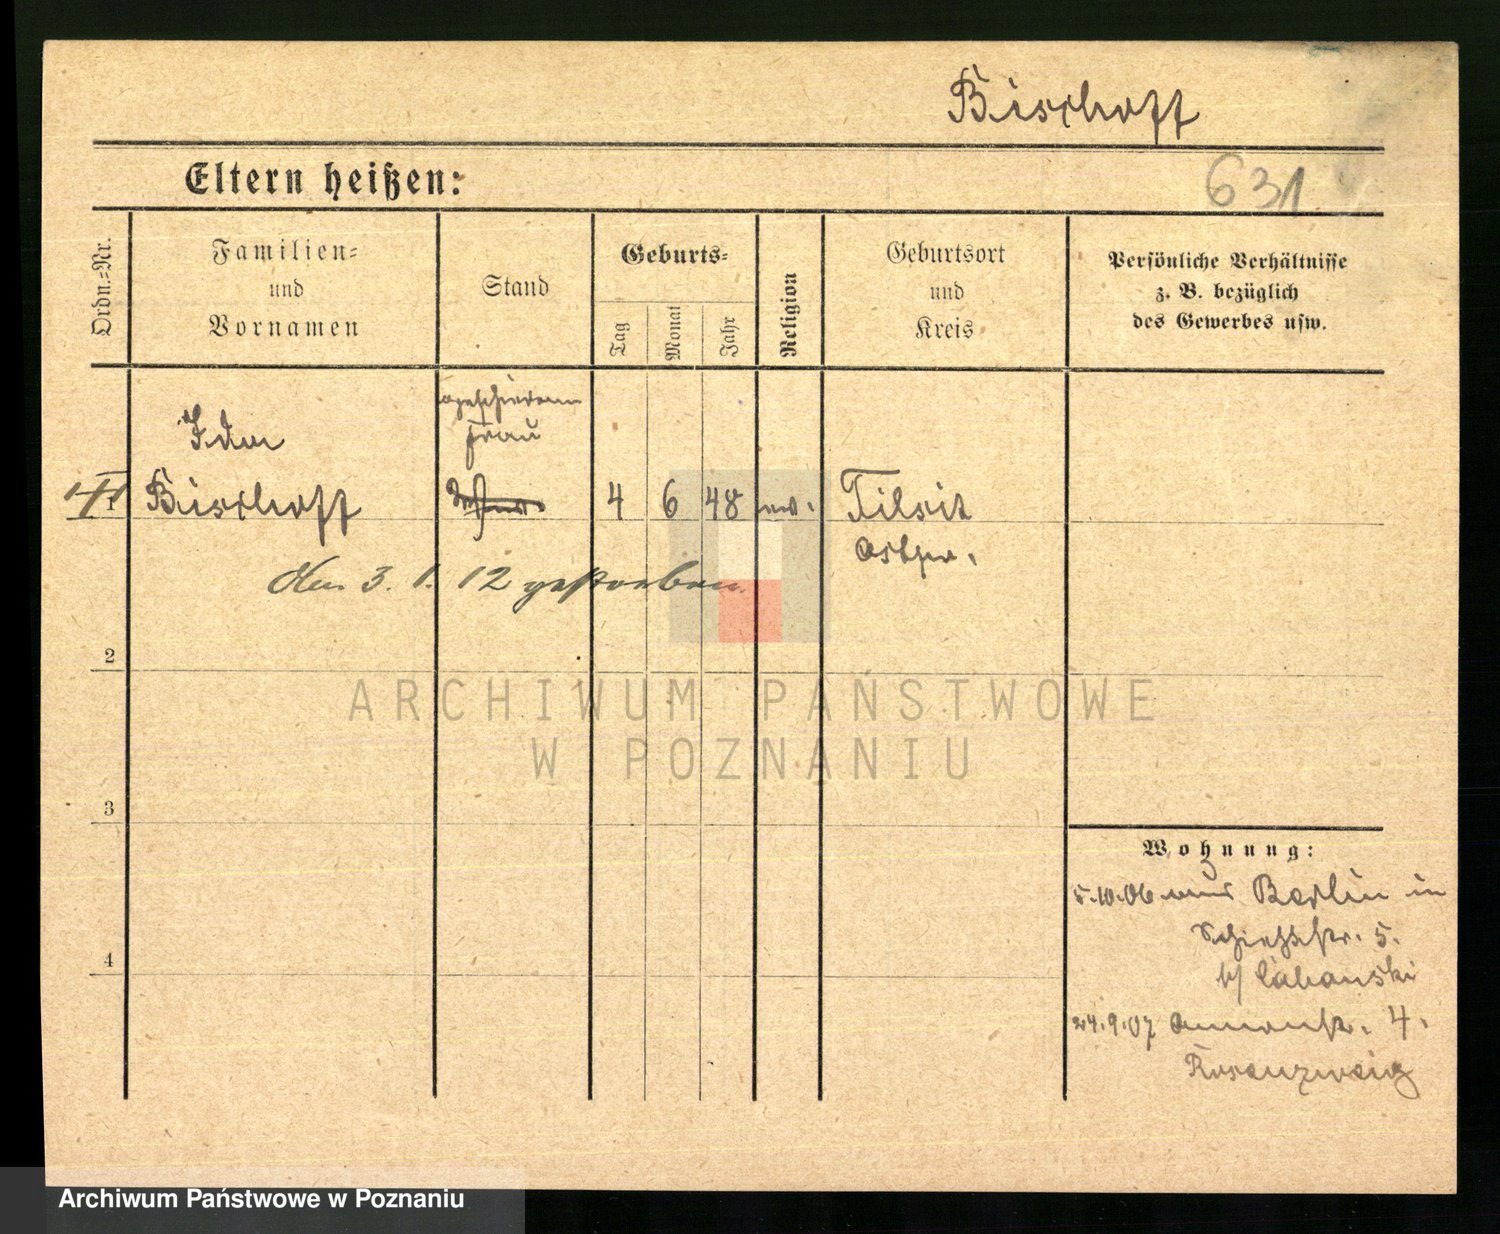 Bischoff
Eltern heißen:
631
Ordn.-Nr.
Familien-
und
Vornamen
Stand
Geburts-
Tag
Monat
Jahr
Religion
Geburtsort
und
Kreis
Persönliche Verhältnisse
z. B. bezüglich
des Gewerbes usw.
geschiedene
Frau
Ida
1 Bischoff 4 6 48 ev. Tilsit
Ostpr.
den 3. 1. 12 gestorben.
2
ARCHIWUM PAŃSTWOWE
W POZNANIU
3
Wohnung:
5.10.06 aus Berlin in
Schießstr. 5.
b/ Cabanski
4
24.9.07 4.
Rosenzweig
Archiwum Państwowe w Poznaniu